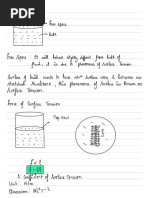 Free Space
bulk
Free Space : It will behave slightly different from bulk of
fluid, it is due to phenomenon of Surface Tension.
Surface of fluid wants to have min surface area & behaves as
stretched membrane, this phenomenon is known as
Surface Tension.
Force of Surface Tension
Top view
F ∝ l
F = Sl
S: Coefficient of Surface Tension
Unit : N/m
Dimension : ML⁰T⁻²